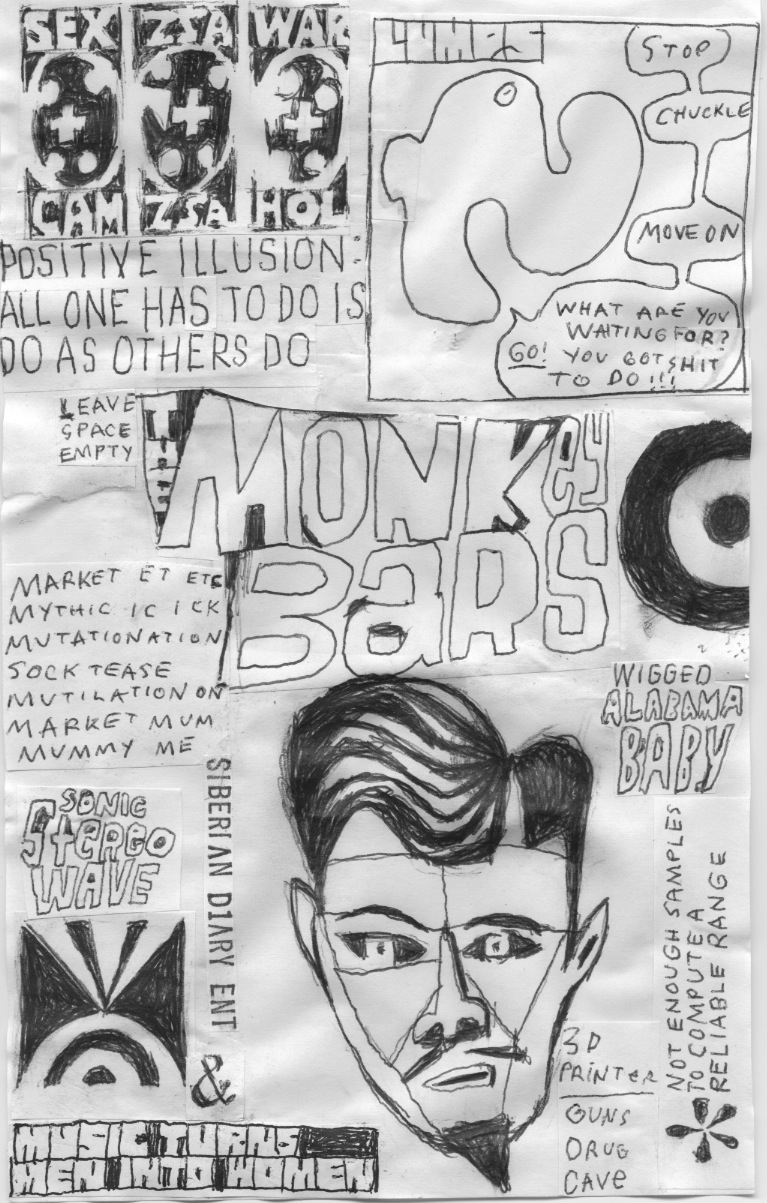 SEX ZSA WAR
CAM ZSA HOL
POSITIVE ILLUSION:
ALL ONE HAS TO DO IS
DO AS OTHERS DO
STOP
CHUCKLE
MOVE ON
WHAT ARE YOU
WAITING FOR?
GO! YOU GOT SHIT
TO DO!!!
LEAVE
SPACE
EMPTY
MONKey
BaRS
MARKET ET ETC
MYTHIC IC ICK
MUTATIONATION
SOCK TEASE
MUTILATION ON
MARKET MUM
MUMMY ME
WIGGED
ALABAMA
BABY
SONIC
STeREO
WAVE
SIBERIAN DIARY ENT
&
NOT ENOUGH SAMPLES
TO COMPUTE A
RELIABLE RANGE
3D
PRINTER
GUNS
DRUG
CAVe
MEN INTO WOMEN